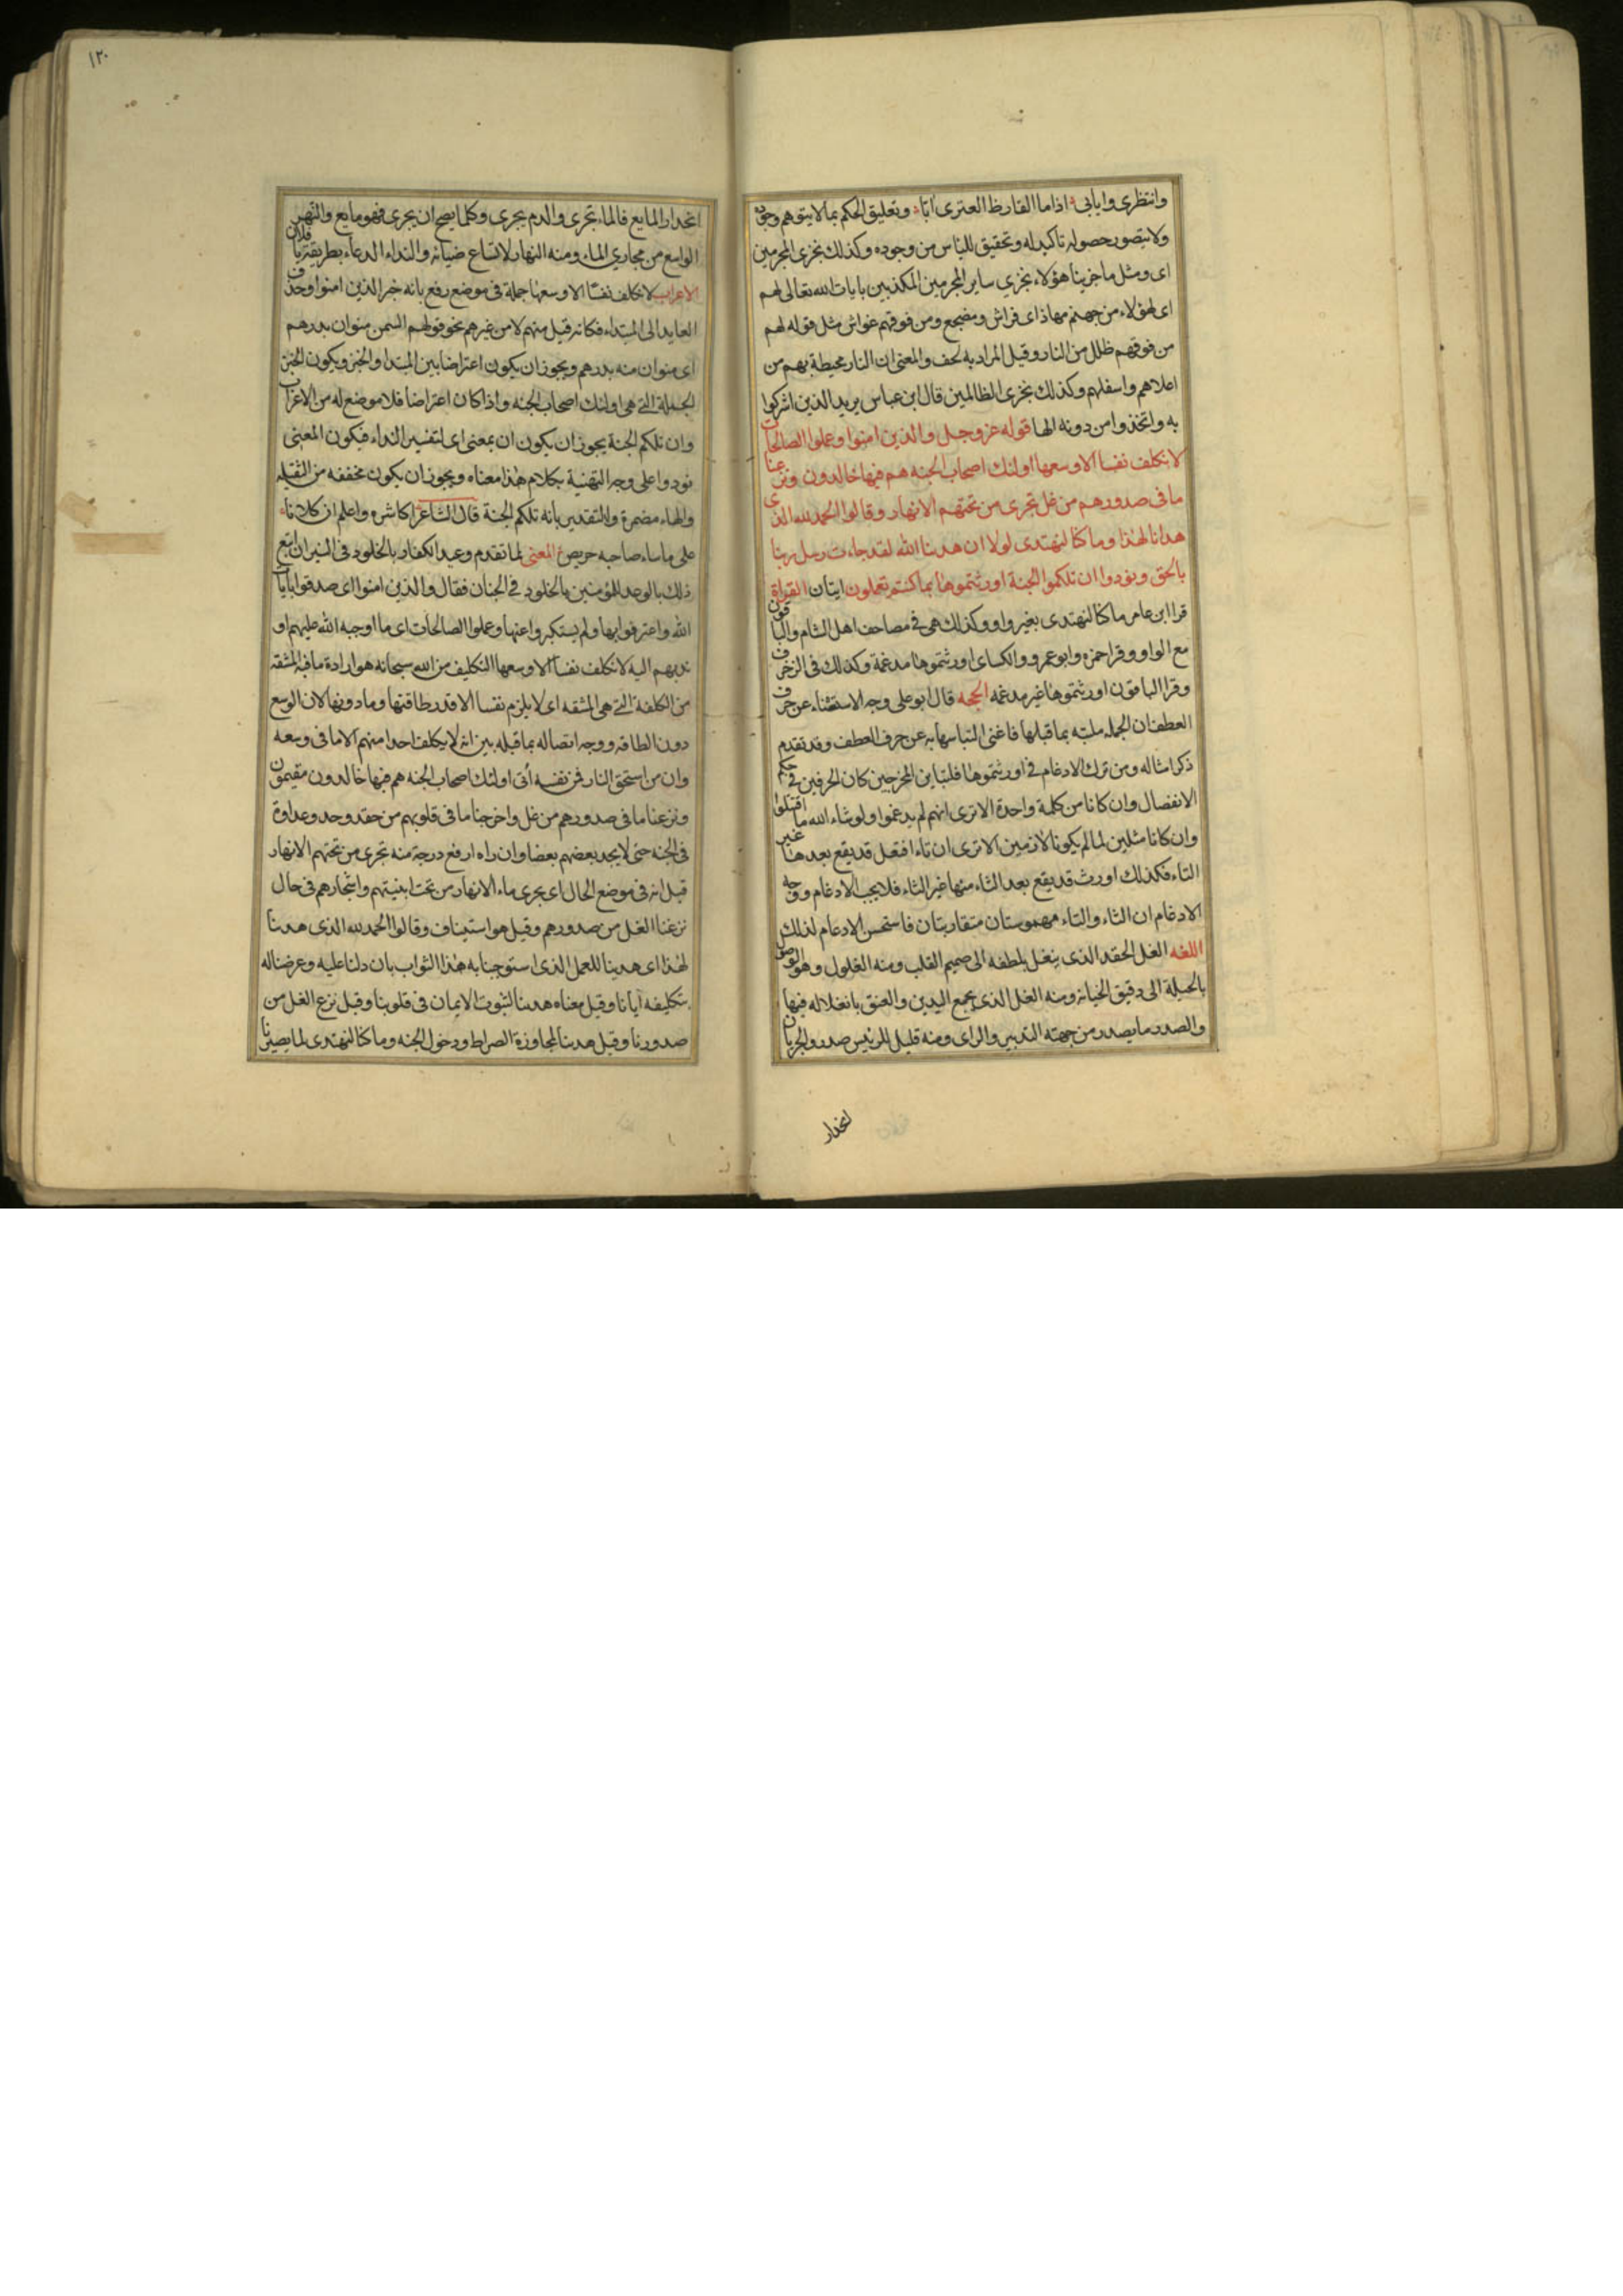 وانتظرى وايابى اذا ما القارظ العنزى ابا وتعليق الحكم بما لا يتوهم وجوده
ولا يتصور حصوله تاكيد له وتحقيق للياس من وجوده وكذلك نجزى المجرمين
اى ومثل ما جزينا هؤلاء نجزي ساير المجرمين المكذبين بايات الله تعالى لهم
اى لهؤلاء من جهنم مهاد اى فراش ومضجع ومن فوقهم غواش مثل قوله لهم
من فوقهم ظلل من النار وقيل المراد به لحف والمعنى ان النار محيطة بهم من
اعلاهم واسفلهم وكذلك نجزى الظالمين قال ابن عباس يريد الذين اشركوا
به واتخذوا من دونه الها قوله عز وجل والذين امنوا وعملوا الصالحات
لا نكلف نفسا الا وسعها اولئك اصحاب الجنه هم فيها خالدون ونزعنا
ما فى صدورهم من غل تجرى من تحتهم الانهار وقالوا الحمد لله الذى
هدانا لهذا وما كنا لنهتدى لولا ان هدينا الله لقد جاءت رسل ربنا
بالحق ونودوا ان تلكموا الجنة اورثتموها بما كنتم تعملون ايتان القراة
قرا ابن عامر ما كنا لنهتدى بغير واو وكذلك هى فى مصاحف اهل الشام والباقون
مع الواو وقرا حمزه وابو عمرو والكساى اورثتموها مدغمة وكذلك فى الزخرف
وقرا الباقون اورثتموها غير مدغمه الحجه قال ابو على وجه الاستغناء عن حرف
العطف ان الجمله ملتبه بما قبلها فاغنى التباسها به عن حرف العطف وقد تقدم
ذكر امثاله ومن ترك الادغام فى اورثتموها فلتباين المخرجين كان الحرفين فى حكم
الانفصال وان كانا من كلمة واحدة الا ترى انهم لم يدغموا ولو شاء الله ما اقتتلوا
وان كانا مثلين لما لم يكونا لازمين الا ترى ان تاء افتعل قد يقع بعدها غير
التاء فكذلك اورث قد يقع بعد الثاء منها غير التاء فلا يجب الادغام ووجه
الادغام ان الثاء والتاء مهموستان متقاربتان فاستحسن الادغام لذلك
اللغه الغل الحقد الذى ينغل بلطفه الى صميم القلب ومنه الغلول وهو الوصول
بالحيلة الى دقيق الخيانه ومنه الغل الذى يجمع اليدين والعنق بانغلاله فيها
والصدر ما يصدر من جهته التدبير والراى ومنه قليل للرئيس صدر والجريان
انحدار
١٢٠
انحدار المايع فالماء تجرى والدم يجرى وكلما يصح ان يجرى فهو مايع والنهر
الواسع من مجاري الماء ومنه النهار لاتساع ضيائه والنداء الدعاء بطريقة يا فلان
الاعراب لا نكلف نفسًا الا وسعها جملة فى موضع رفع بانه خبر الذين امنوا وحذف
العايد الى المبتداء فكانه قيل منهم لا من غيرهم نحو قولهم السمن منوان بدرهم
اى منوان منه بدرهم ويجوز ان يكون اعتراضا بين المبتدا والخبر ويكون الخبر
الجملة التى هى اولئك اصحاب الجنه واذا كان اعتراضا فلا موضع له من الاعراب
وان تلكم الجنة يجوز ان يكون ان بمعنى اى لتفسير النداء فيكون المعنى
نودوا على وجه التهنية بكلام هذا معناه ويجوز ان يكون مخففه من الثقيله
والهاء مضمرة والتقدير بانه تلكم الجنة قال الشاعر اكاشره واعلم ان كلانا
على ما ساء صاحبه حريص المعنى لما تقدم وعيد الكفار بالخلود فى النيران اتبع
ذلك بالوعد للمؤمنين بالخلود فى الجنان فقال والذين امنوا اى صدقوا بايات
الله واعترفوا بها ولم يستكبروا عنها وعملوا الصالحات اى ما اوجبه الله عليهم او
ندبهم اليه لا نكلف نفسا الا وسعها التكليف من الله سبحانه هو ارادة ما فيه المشقه
من الكلفة التى هى المشقه اى لا يلزم نفسا الا قدر طاقتها وما دونها لان الوسع
دون الطاقه ووجه اتصاله بما قبله بين انه لا يكلف احدا منهم الا ما فى وسعه
وان من استحق النار فمن نفسه أتى اولئك اصحاب الجنه هم فيها خالدون مقيمون
ونزعنا ما فى صدورهم من غل واخرجنا ما فى قلوبهم من حقد وحسد وعداوة
فى الجنه حتى لا يحسد بعضهم بعضا وان راه ارفع درجة منه تجرى من تحتهم الانهار
قيل انه فى موضع الحال اى يجرى ماء الانهار من تحت ابنيتهم واشجارهم فى حال
نزعنا الغل من صدورهم وقيل هو استيناف وقالوا الحمد لله الذى هدينا
لهذا اى هدينا للعمل الذى استوجبنا به هذا الثواب بان دلنا عليه وعرضنا له
بتكليفه ايانا وقيل معناه هدينا لثبوت الايمان فى قلوبنا وقيل نزع الغل من
صدورنا وقيل هدينا لمجاوزة الصراط ودخول الجنه وما كنا لنهتدى لما يصيرنا